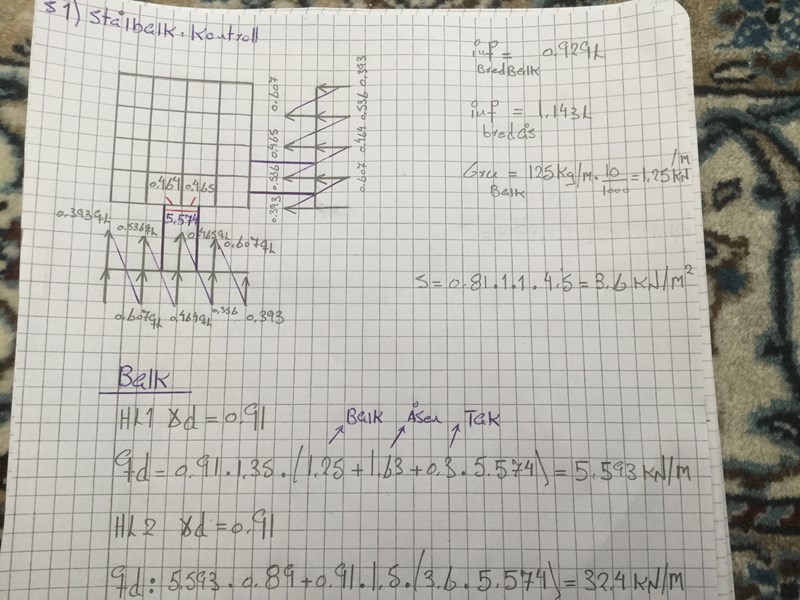 S1) Stålbalk. Kontroll
inf = 0.929L
BredBalk
inf = 1.143L
bredås
Gru = 125 Kg/m · 10/1000 = 1.25 kN/m
Balk
0.607 0.465 0.536 0.393
0.393 0.536 0.464 0.607
0.464 0.465
5.574
0.393qL 0.536qL 0.465qL 0.607qL
0.607qL 0.464qL 0.536 0.393
S = 0.81.1.1.4.5 = 3.6 kN/m²
Balk
HL1 γd = 0.91
Balk Åsen Tak
qd = 0.91.1.35.(1.25 + 1.63 + 0.3.5.574) = 5.593 kN/m
HL2 γd = 0.91
qd: 5.593.0.89 + 0.91.1.5.(3.6.5.574) = 32.4 kN/m